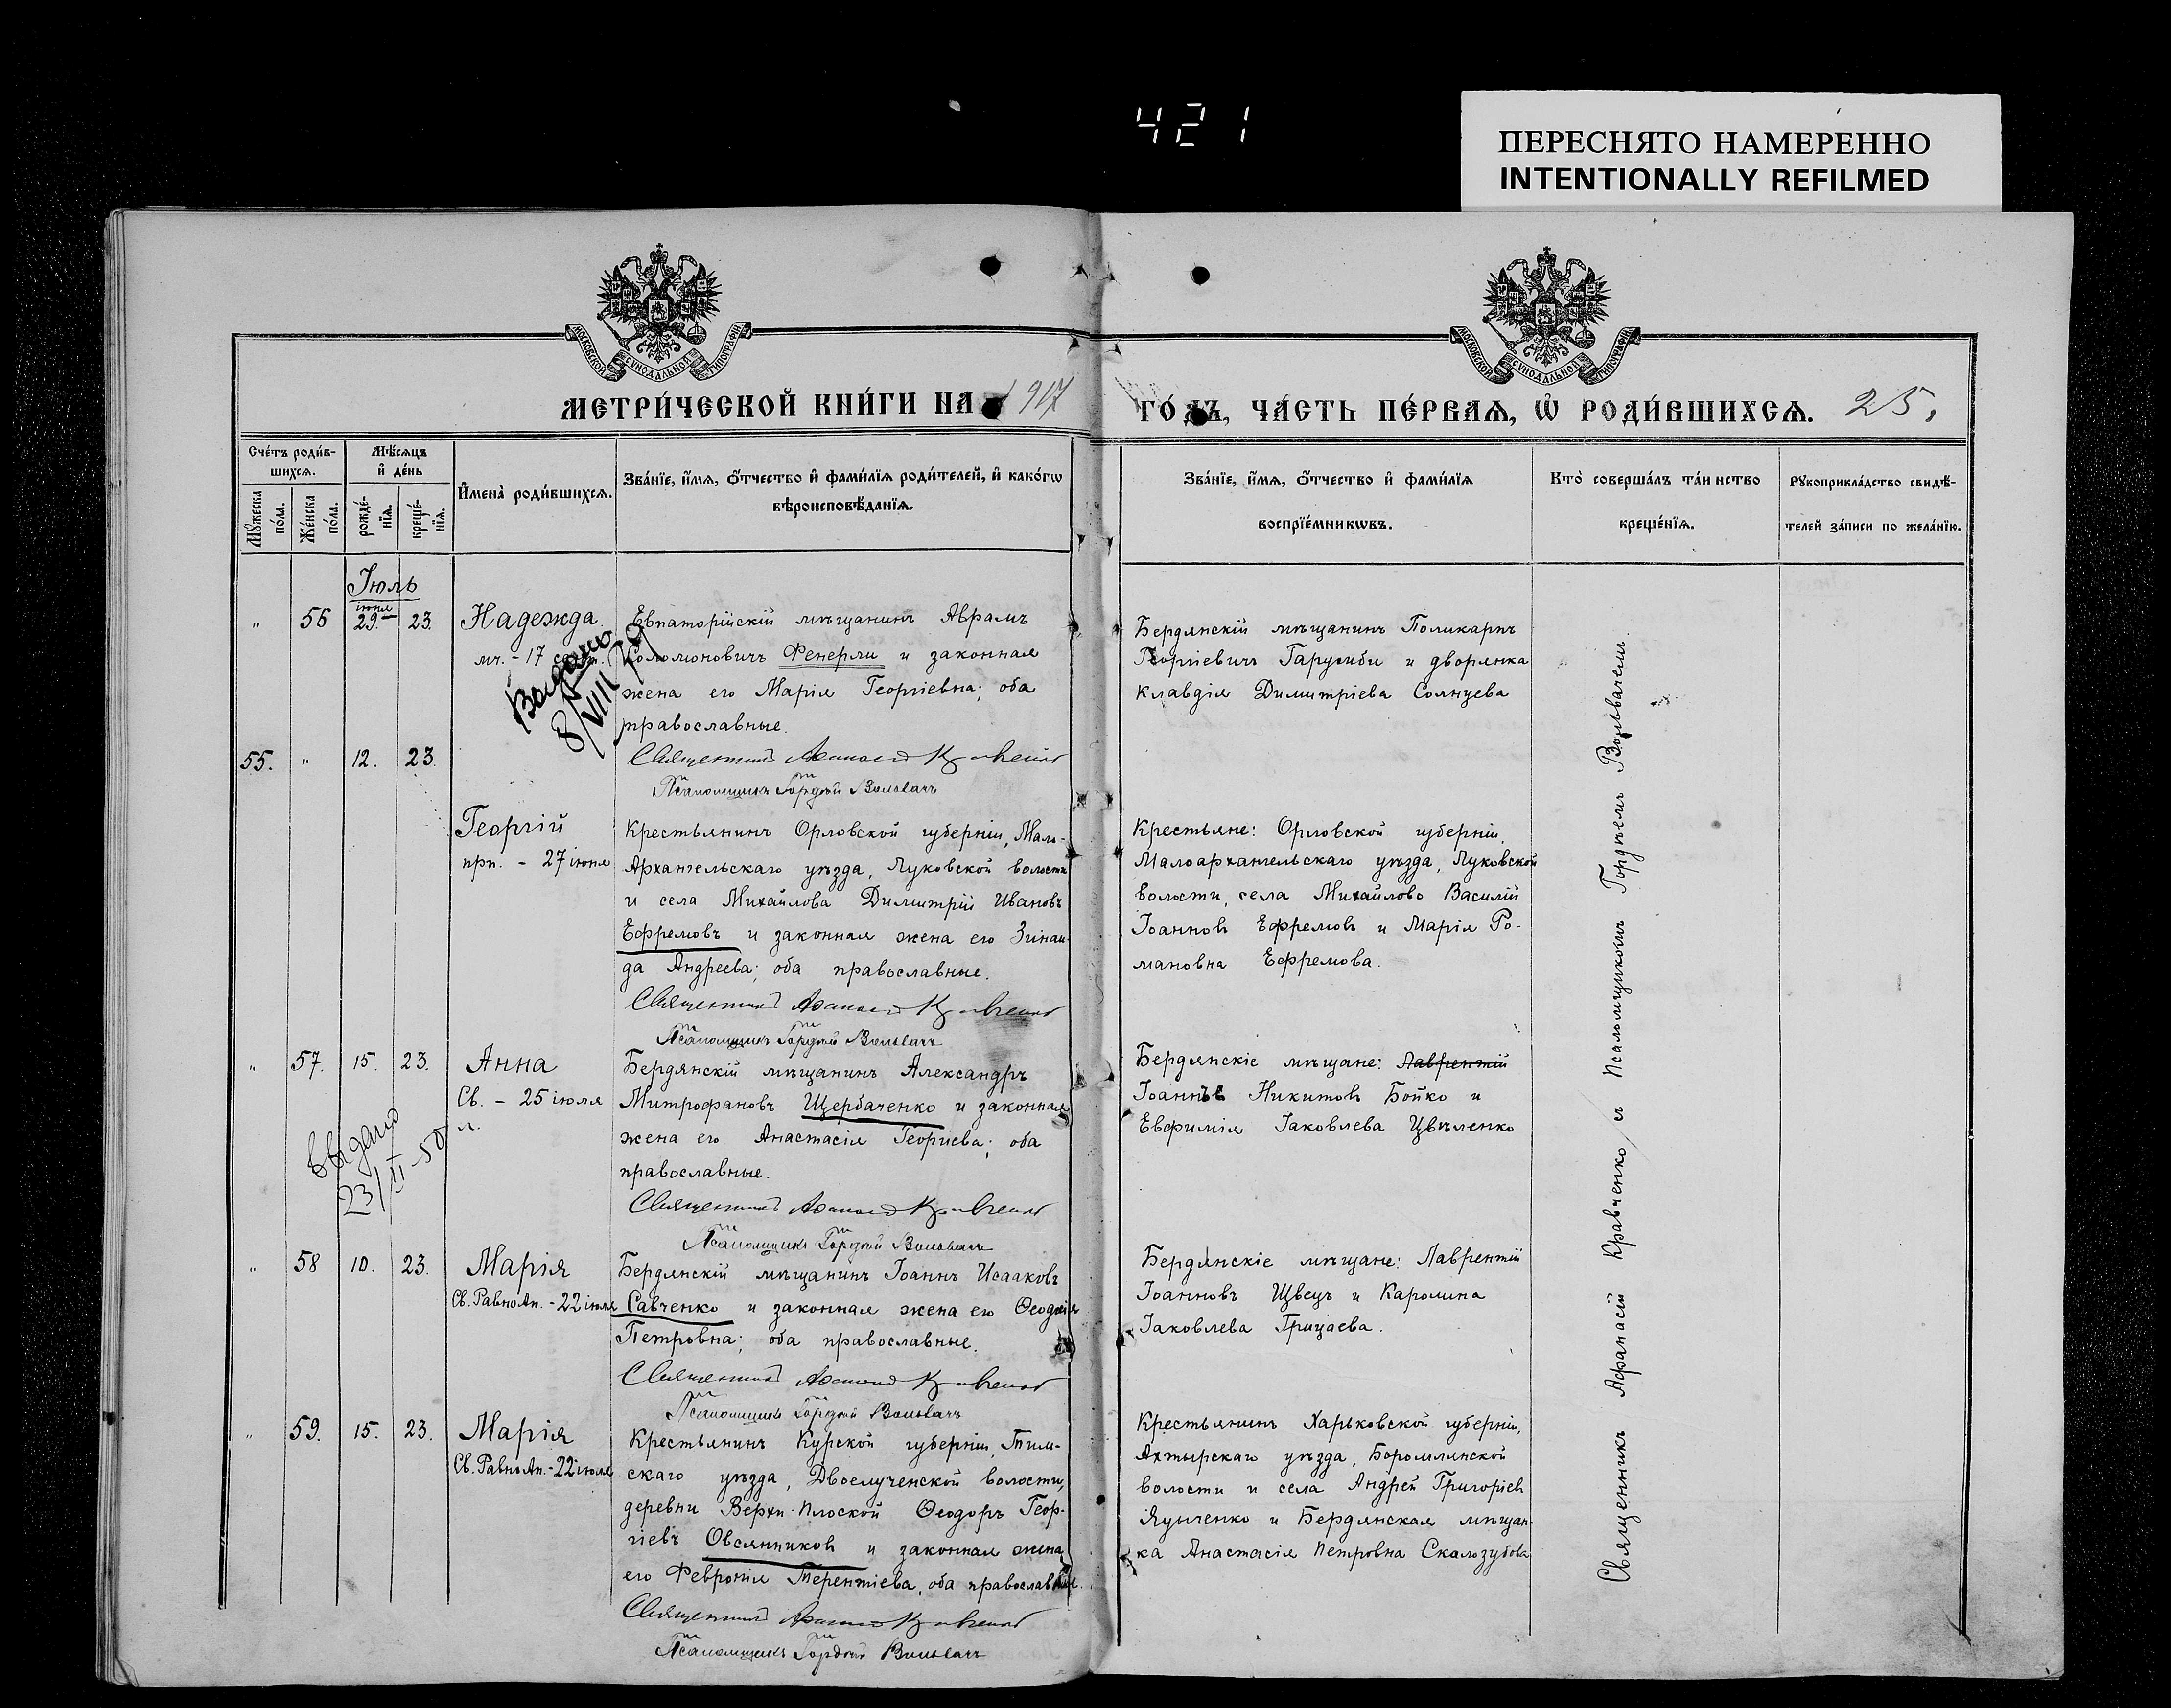 421
ПЕРЕСНЯТО НАМЕРЕННО
INTENTIONALLY REFILMED
МОСКОВСКОЙ СУНОДАЛЬНОЙ ТИПОГРАФІИ
МОСКОВСКОЙ СУНОДАЛЬНОЙ ТИПОГРАФІИ
МЕТРИ́ЧЕСКОЙ КНИ́ГИ НА 1917
ГО́ДЪ, ЧА́СТЬ ПЕ́РВАѦ, Ѽ РОДИ́ВШИХСѦ. 25.
Сче́тъ роди́в-
шихсѧ.
Мꙋ́жеска по́ла.
Же́нска по́ла.
Мѣ́сѧцъ
и҆ де́нь
рожде́-
нїѧ.
креще́-
нїѧ.
И҆мена̀ роди́вшихсѧ.
Зва́нїе, и҆́мѧ, ѻ҆́тчество и҆ фами́лїѧ роди́телей, и҆ како́гѡ
вѣроисповѣ́данїѧ.
Зва́нїе, и҆́мѧ, ѻ҆́тчество и҆ фами́лїѧ
воспрїе́мникѡвъ.
Кто̀ соверша́лъ та́инство
креще́нїѧ.
Рꙋкоприкла́дство свидѣ́-
телей за́писи по жела́нїю.
Іюль
" 56 іюня 29. 23. Надежда.
мч. - 17
Выдано
8/VIII
Евпаторійскій мѣщанинъ Аврамъ
Соломоновичъ Фенерли и законная
жена его Марія Георгіевна; оба
православные.
Священникъ Афанасій Кравченко
Псаломщикъ Гордѣй Вользвачъ
Бердянскій мѣщанинъ Поликарпъ
Георгіевичъ и дворянка
Клавдія Димитріева Солнцева
55. " 12. 23.
Георгій
прп. - 27 іюня
Крестьянинъ Орловской губерніи, Мало-
Архангельскаго уѣзда, Луковской волости
и села Михайлова Димитрій Ивановъ
Ефремовъ и законная жена его Зинаи-
да Андреева; оба православные.
Священникъ Афанасій Кравченко
Псаломщикъ Гордѣй Вользвачъ
Крестьяне: Орловской губерніи,
Малоархангельскаго уѣзда, Луковской
волости, села Михайлово Василій
Іоанновъ Ефремовъ и Марія Ро-
мановна Ефремова.
" 57. 15. 23. Анна
Св. - 25 іюля
Выдано
23/II-50 г.
Бердянскій мѣщанинъ Александръ
Митрофановъ Щербаченко и законная
жена его Анастасія Георгіева; оба
православные.
Священникъ Афанасій Кравченко
Псаломщикъ Гордѣй Вользвачъ
Бердянскіе мѣщане: Лаврентій
Іоаннъ Никитовъ Бойко и
Евфимія Іаковлева Цвѣленко
" 58 10. 23. Марія
Св. РавноАп. - 22 іюля
Бердянскій мѣщанинъ Іоаннъ Исааковъ
Савченко и законная жена его Ѳеодосія
Петровна; оба православные.
Священникъ Афанасій Кравченко
Псаломщикъ Гордѣй Вользвачъ
Бердянскіе мѣщане: Лаврентій
Іоанновъ Щвецъ и Каролина
Іаковлева Грицаева.
" 59. 15. 23. Марія
Св. РавноАп. - 22 іюля
Крестьянинъ Курской губерніи, Тим-
скаго уѣзда, Двоелученской волости,
деревни Верхи-Плоской Ѳеодоръ Геор-
гіевъ Овсянниковъ и законная жена
его Февронія Терентіева, оба православные.
Священникъ Афанасій Кравченко
Псаломщикъ Гордѣй Вользвачъ
Крестьянинъ Харьковской губерніи,
Ахтырскаго уѣзда, Боромлянской
волости и села Андрей Григоріевъ
Яцыченко и Бердянская мѣщан-
ка Анастасія Петровна Скалозубова
Священникъ Афанасій Кравченко и Псаломщикомъ Гордѣемъ Вользвачемъ.